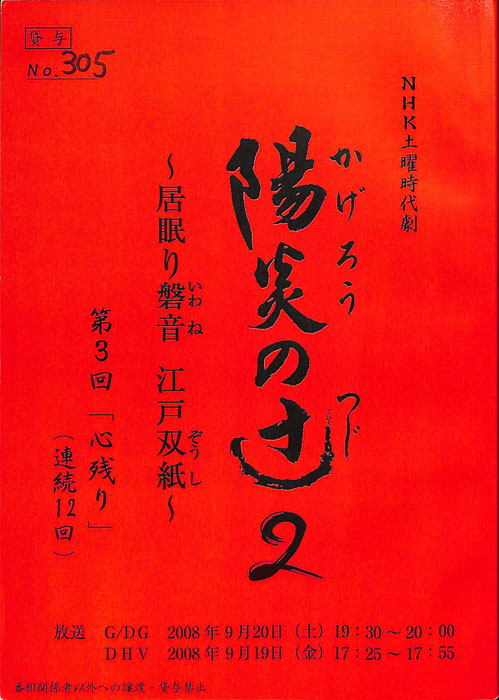 貸与
No.305
NHK土曜時代劇
かげろう つじ
陽炎の辻2
いわね ぞうし
~居眠り磐音 江戸双紙~
第3回「心残り」
(連続12回)
放送 G/DG 2008年9月20日(土)19:30~20:00
DHV 2008年9月19日(金)17:25~17:55
番組関係者以外への譲渡・貸与禁止